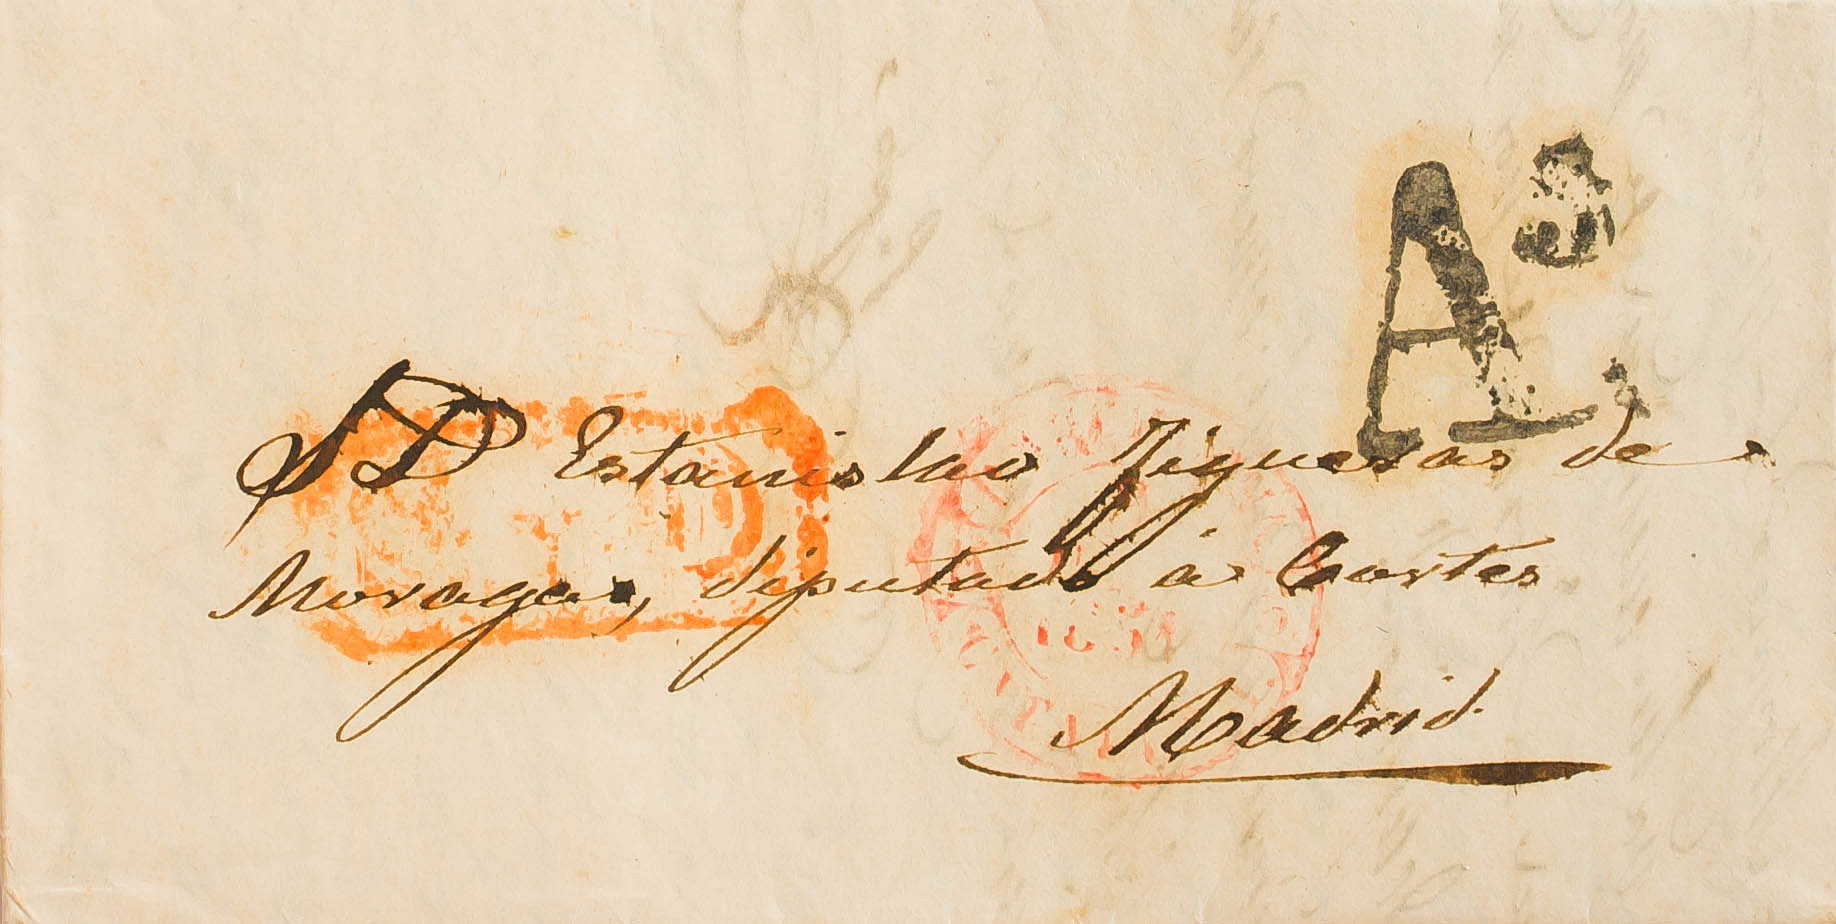 As
SD Estanislao Figueras de
Moragas, diputado à Cortes
Madrid.
1851